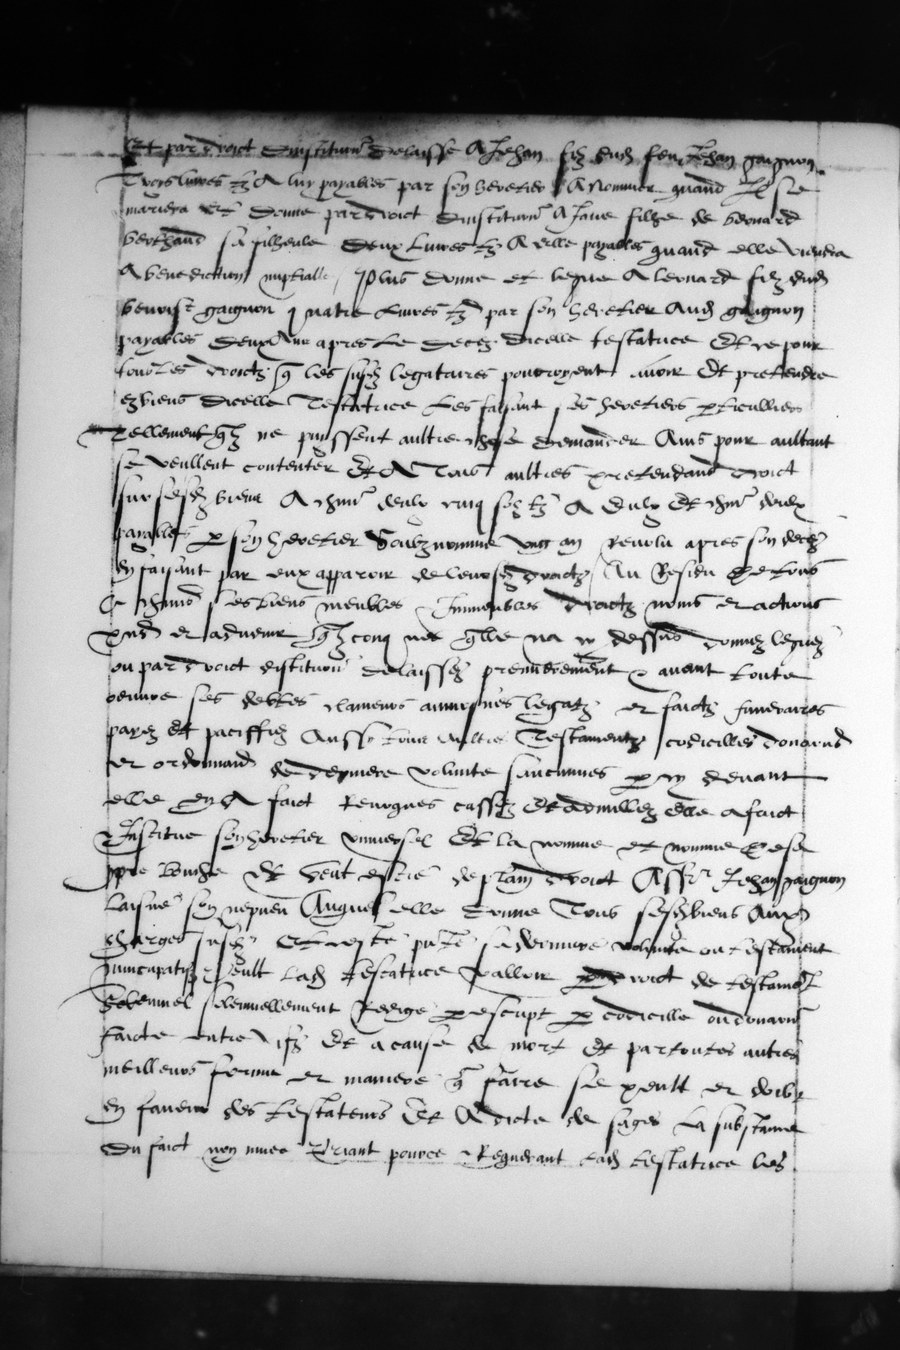 Et par droict dinstitution delaisse A Jehan filz dud feu Jehan gaignon
Trois livres tz A luy payables par son heretier A nommer quand Il se
mariera Et donne par droict dinstitution A Jane filhe de leonard
berthaud sa filheule deux livres tz A elle payables quand elle viendra
A benediction nuptialle / Plus donne et legue A leonard filz dud
benoist gaignon quatre livres tz par son heretier Aud gaignon
payables deux Ans apres le decez dicelle testatrice Et ce pour
tous les droictz q les susd legataires pourroyent avoir Et pretendre
ez biens dicelle Testatrice Les faisant ses heretiers particulliers
Tellement qlz ne puyssent aultre chose demander Ains pour aultant
se veullent contenter Et A Tous aultres pretendans droict
sur sesd biens A chun deulx cinq solz tz A Eulx Et chun deulx
payables p son heretier Soubznomme ung an Revolu apres son decez
En faisant par eux apparoir de leursd droictz / Au Residu de tous
Et chuns ses biens meubles Immeubles droictz noms et actions
pns et advenir qlzconques qlle na cy dessus donnez leguez
ou par droict distitution delaissez premierement & avant toute
oeuvre ses debtes clameurs aumosnes legatz et faictz funeraires
payez Et paciffiez Aussy tous aultres Testamentz codicilles donaons
et ordonnans de derniere volunte sancunnes p cy devant
elle En A faict Revoques cassez Et adnullez Elle a faict
Institue son heretier universel Et la nomme et nomme de sa
ppre Bouche Et veut estre de plain droict Asscr Jehan gaignon
laisne son nepveu Auquel elle donne Tous sesd biens Aux
charges susd Et veste pnte sa derniere volunte ou testament
nuncupatif veult lad testatrice valloir par droict de testament
Solemnel solemnellement Redige p escript p codicille ou donation
faicte entre vifz Et a cause de mort Et par toutes autres
meilleurs forme et maniere q faire se peult et doibt
En faveur des testateurs Et A dicte de sages La substance
du faict non muee Priant pource Requerant lad testatrice les